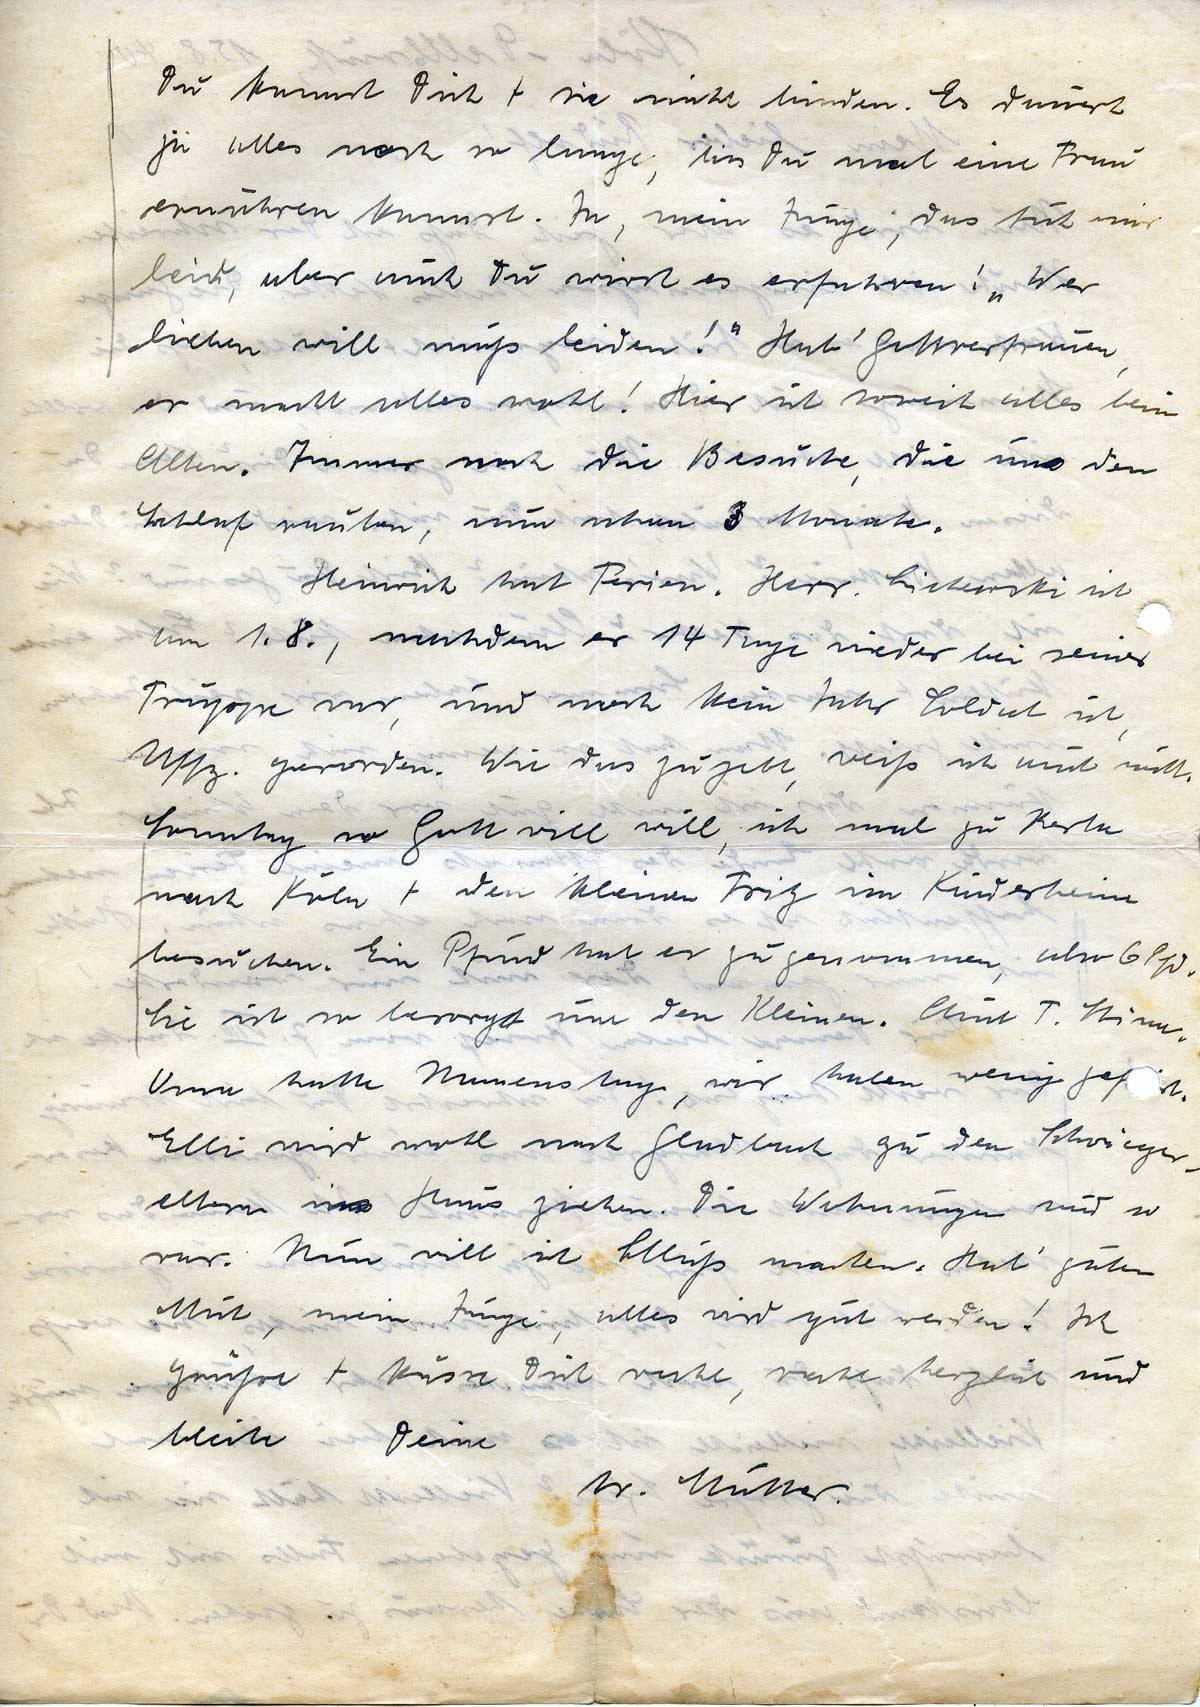 Du kannst Dich + sie nicht binden. Es dauert
ja alles noch so lange, bis Du mal eine Frau
ernähren kannst. Ja, mein Junge, das tut mir
leid, aber auch Du wirst es erfahren! „Wer
lieben will muß leiden!“ Hab' Gottvertrauen,
er macht alles wohl! Hier ist soweit alles beim
Alten. Immer noch die Besuche, die uns den
Schlaf rauben, nun schon 3 Monate.
Heinrich hat Ferien. Herr. ist
am 1.8., nachdem er 14 Tage wieder bei seiner
Truppe war, und noch kein Jahr Soldat ist,
Uffz. geworden. Wie das zugeht, weiß ich auch nicht.
Sonntag so Gott will will, ich mal zu
nach Köln + den kleinen Fritz im Kinderheim
besuchen. Ein Pfund hat er zugenommen, also 6 Pfd.
Sie ist so besorgt um den Kleinen. Auch T.
Oma hatte Namenstag, wir haben wenig
Elli wird wohl nach Gladbach zu den Schwieger-
eltern ins Haus ziehen. Die Wohnungen sind so
rar. Nun will ich Schluß machen. Hab' guten
Mut, mein Junge, alles wird gut werden! Ich
grüße + küsse Dich recht, recht herzlich und
bleibe Deine
tr. Mutter.